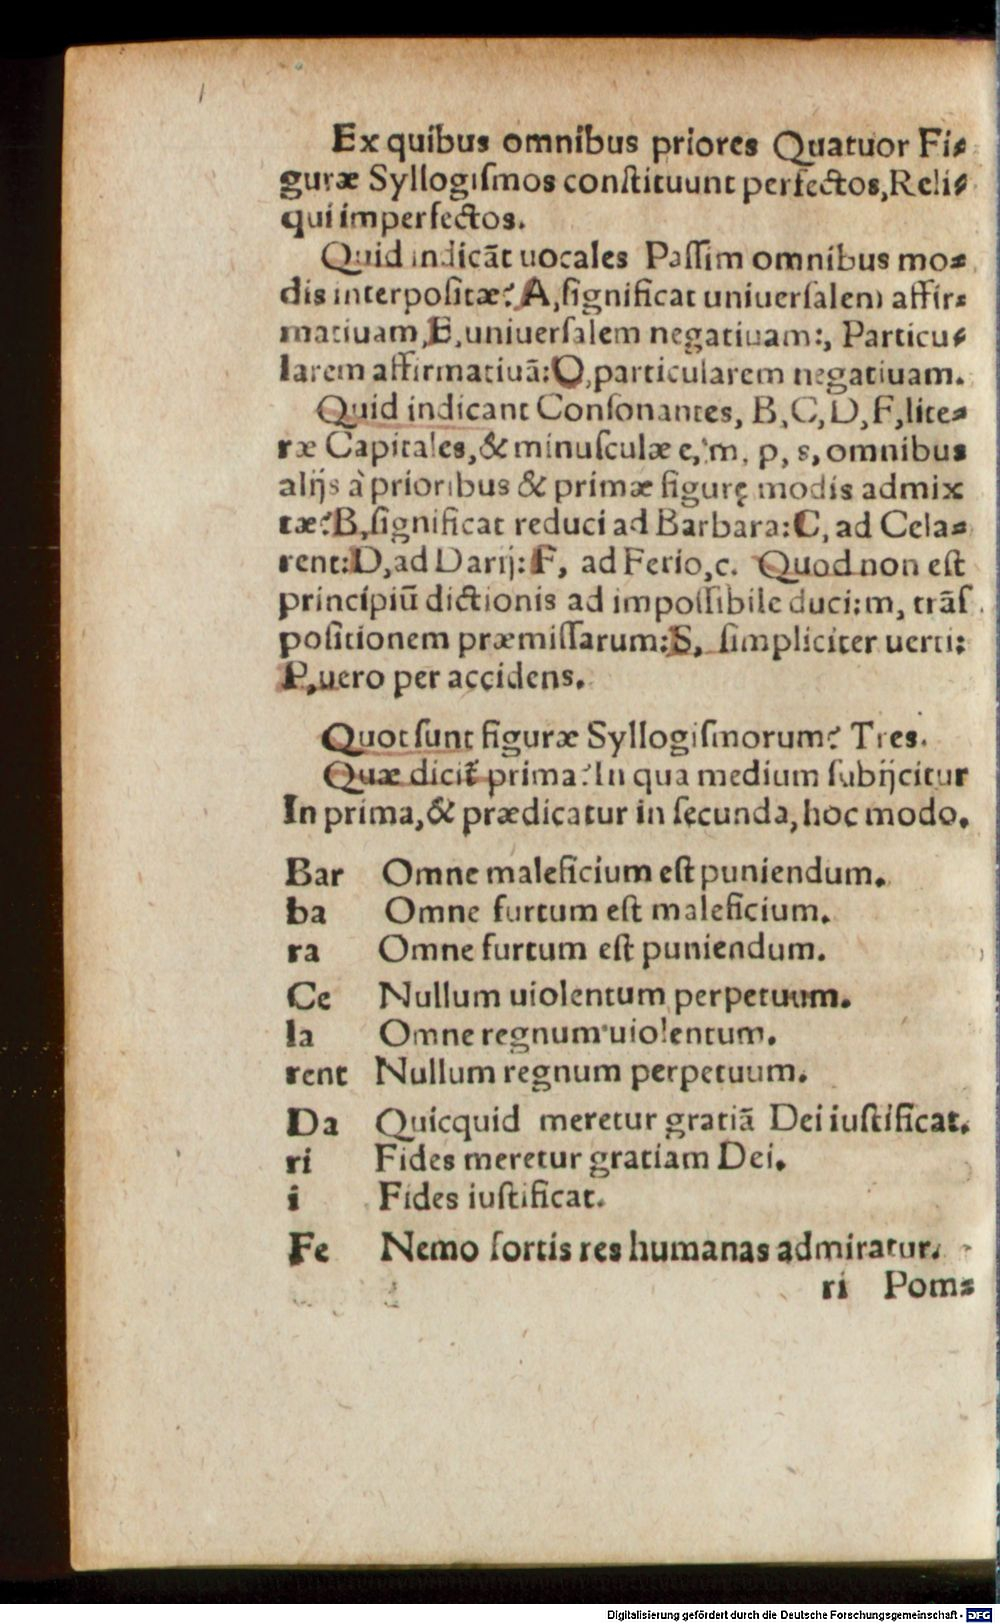 Ex quibus omnibus priores Quatuor Fi⸗
guræ Syllogiſmos conſtituunt perfectos, Reli⸗
qui imperfectos.
Quid indicāt uocales Paſſim omnibus mo⸗
dis interpoſitæ? A, ſignificat uniuerſalem affir⸗
matiuam, E, uniuerſalem negatiuam:, Particu⸗
larem affirmatiuā: O, particularem negatiuam.
Quid indicant Conſonantes, B, C, D, F, lite⸗
ræ Capitales, & minuſculæ c, m, p, s, omnibus
alijs à prioribus & primæ figurę modis admix
tæ? B, ſignificat reduci ad Barbara: C, ad Cela⸗
rent: D, ad Darij: F, ad Ferio, c. Quod non eſt
principiū dictionis ad impoſſibile duci: m, trāſ
poſitionem præmiſſarum: S, ſimpliciter uerti:
P, uero per accidens.
Quot ſunt figuræ Syllogiſmorum? Tres.
Quæ dicit̃ prima? In qua medium ſubijcitur
In prima, & prædicatur in ſecunda, hoc modo.
Bar Omne maleficium eſt puniendum.
ba Omne furtum eſt maleficium.
ra Omne furtum eſt puniendum.
Ce Nullum uiolentum perpetuum.
la Omne regnum uiolentum.
rent Nullum regnum perpetuum.
Da Quicquid meretur gratiā Dei iuſtificat.
ri Fides meretur gratiam Dei.
i Fides iuſtificat.
Fe Nemo fortis res humanas admiratur.
ri Pom⸗
Digitalisierung gefördert durch die Deutsche Forschungsgemeinschaft - DFG